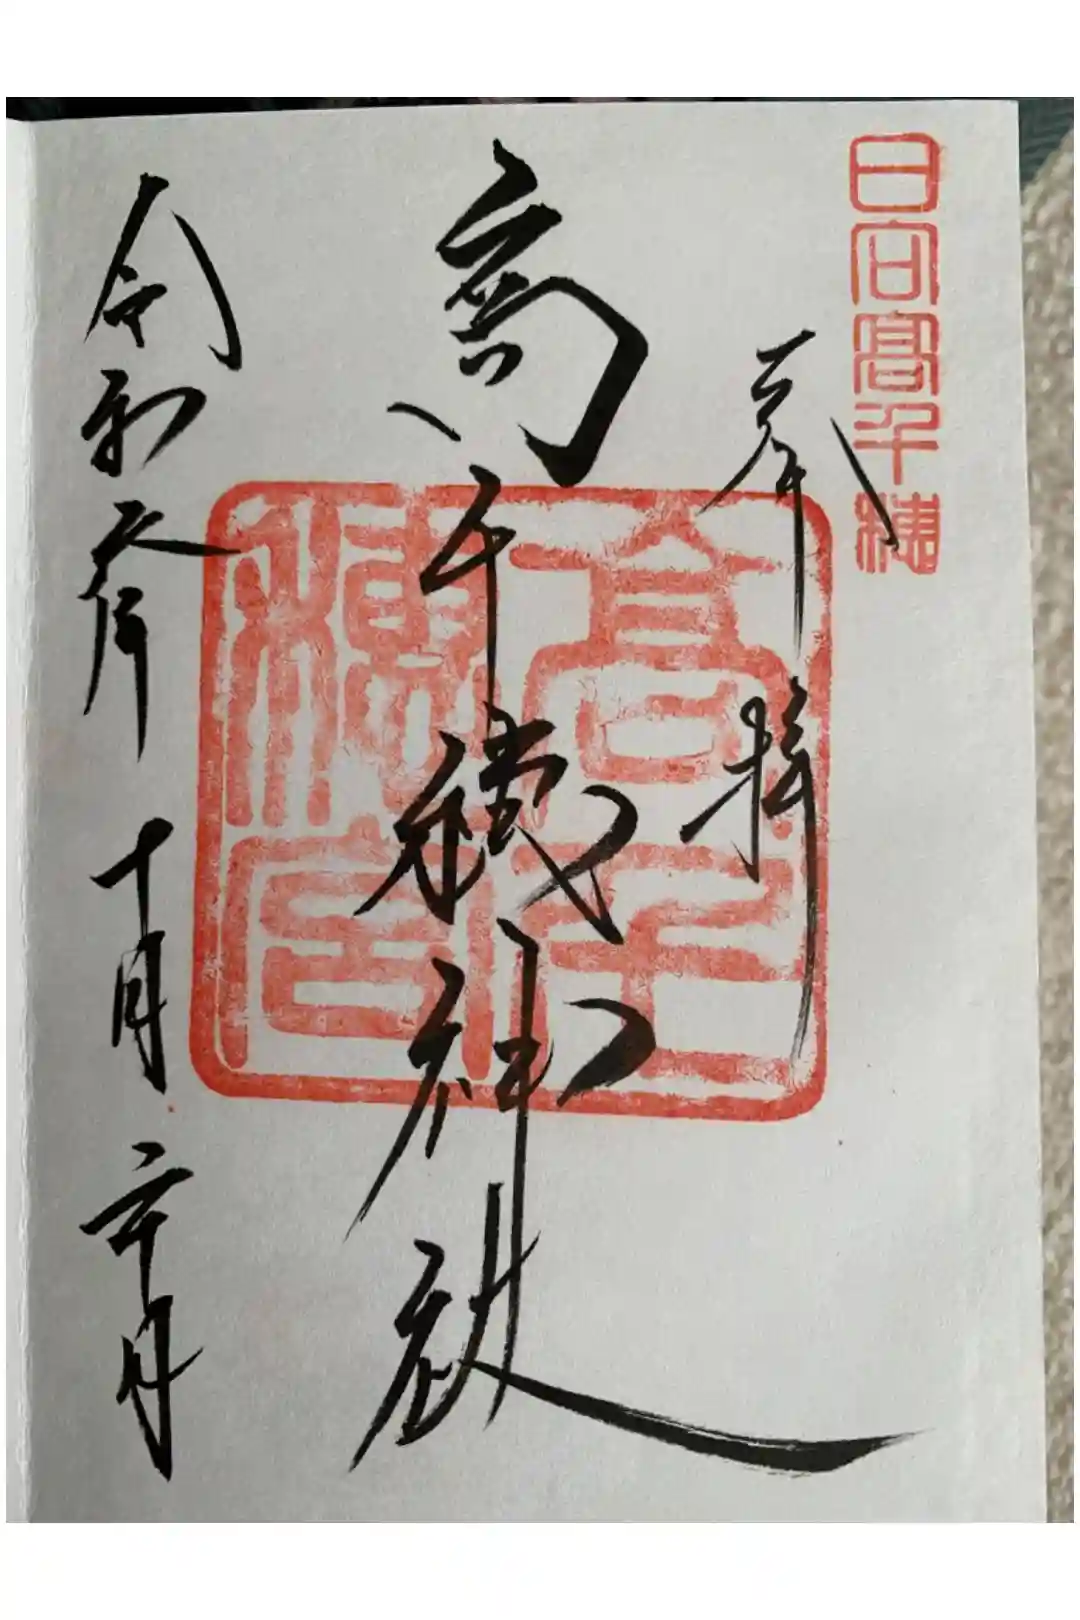 日向高千穂
奉拝
高千穂神社
高千穂宮
令和 年 十月 二十日